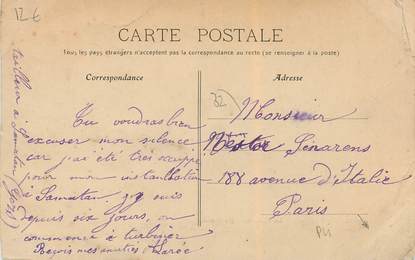 12€
CARTE POSTALE
Tous les pays étrangers n'acceptent pas la correspondance au recto (se renseigner à la poste)
Correspondance
Adresse
tailleur à Samatan (Gers)
Tu voudras bien
excuser mon silence
car j'ai été très occupé
pour mon installation
à Samatan. j'y suis
depuis six jours, on
commence à turbiner
Reçois mes amitiés
32)
Monsieur
Nestor Sénarens
188 avenue d'Italie
Paris